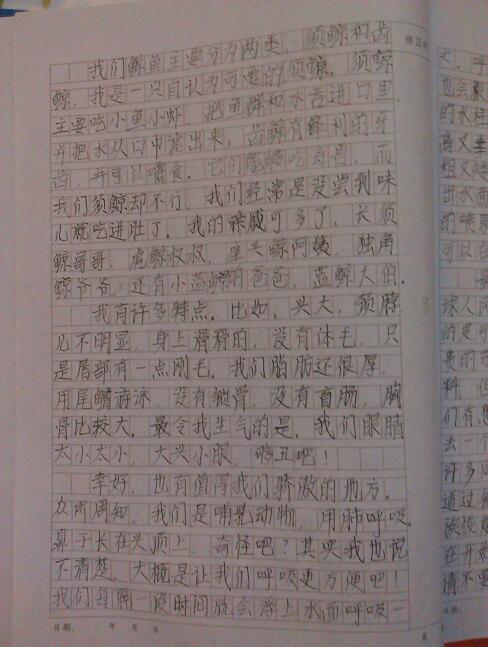 修正
我们鲸鱼主要分为两类，须鲸和齿
鲸，我是一只自认为可爱的须鲸。须鲸
主要吃小鱼小虾，把鱼群和水舌进口里，
并把水从口中滤出来，齿鲸有锋利的牙
齿，并可以嚼食，它们能够吃海兽，而
我们须鲸却不行，我们经常是没尝到味
儿就吃进肚了。我的亲戚可多了，长须
鲸哥哥、虎鲸叔叔、座头鲸阿姨、独角
鲸爷爷，还有小蓝鲸的爸爸，蓝鲸大伯。
我有许多特点，比如，头大，颈脖
儿不明显，身上滑滑的，没有体毛，只
是唇部有一点刚毛，我们脂肪还很厚，
用尾鳍游泳，没有锁骨，没有盲肠，胸
骨比较大。最令我生气的是，我们眼睛
太小太小，大头小眼，够丑吧！
幸好，也有值得我们骄傲的地方。
众所周知，我们是哺乳动物，用肺呼吸。
鼻子长在头顶上，奇怪吧？其实我也说
不清楚，大概是让我们呼吸更方便吧！
我们每隔一段时间就会浮上水面呼吸一
日期： 年 月 日
第
大，呼
也会
的水柱
高又
粗又
出水面
的喷
可以
球人
的是可
贵的
料，但
们有
去一个
许多
通过
族
在开
请不要
日期：